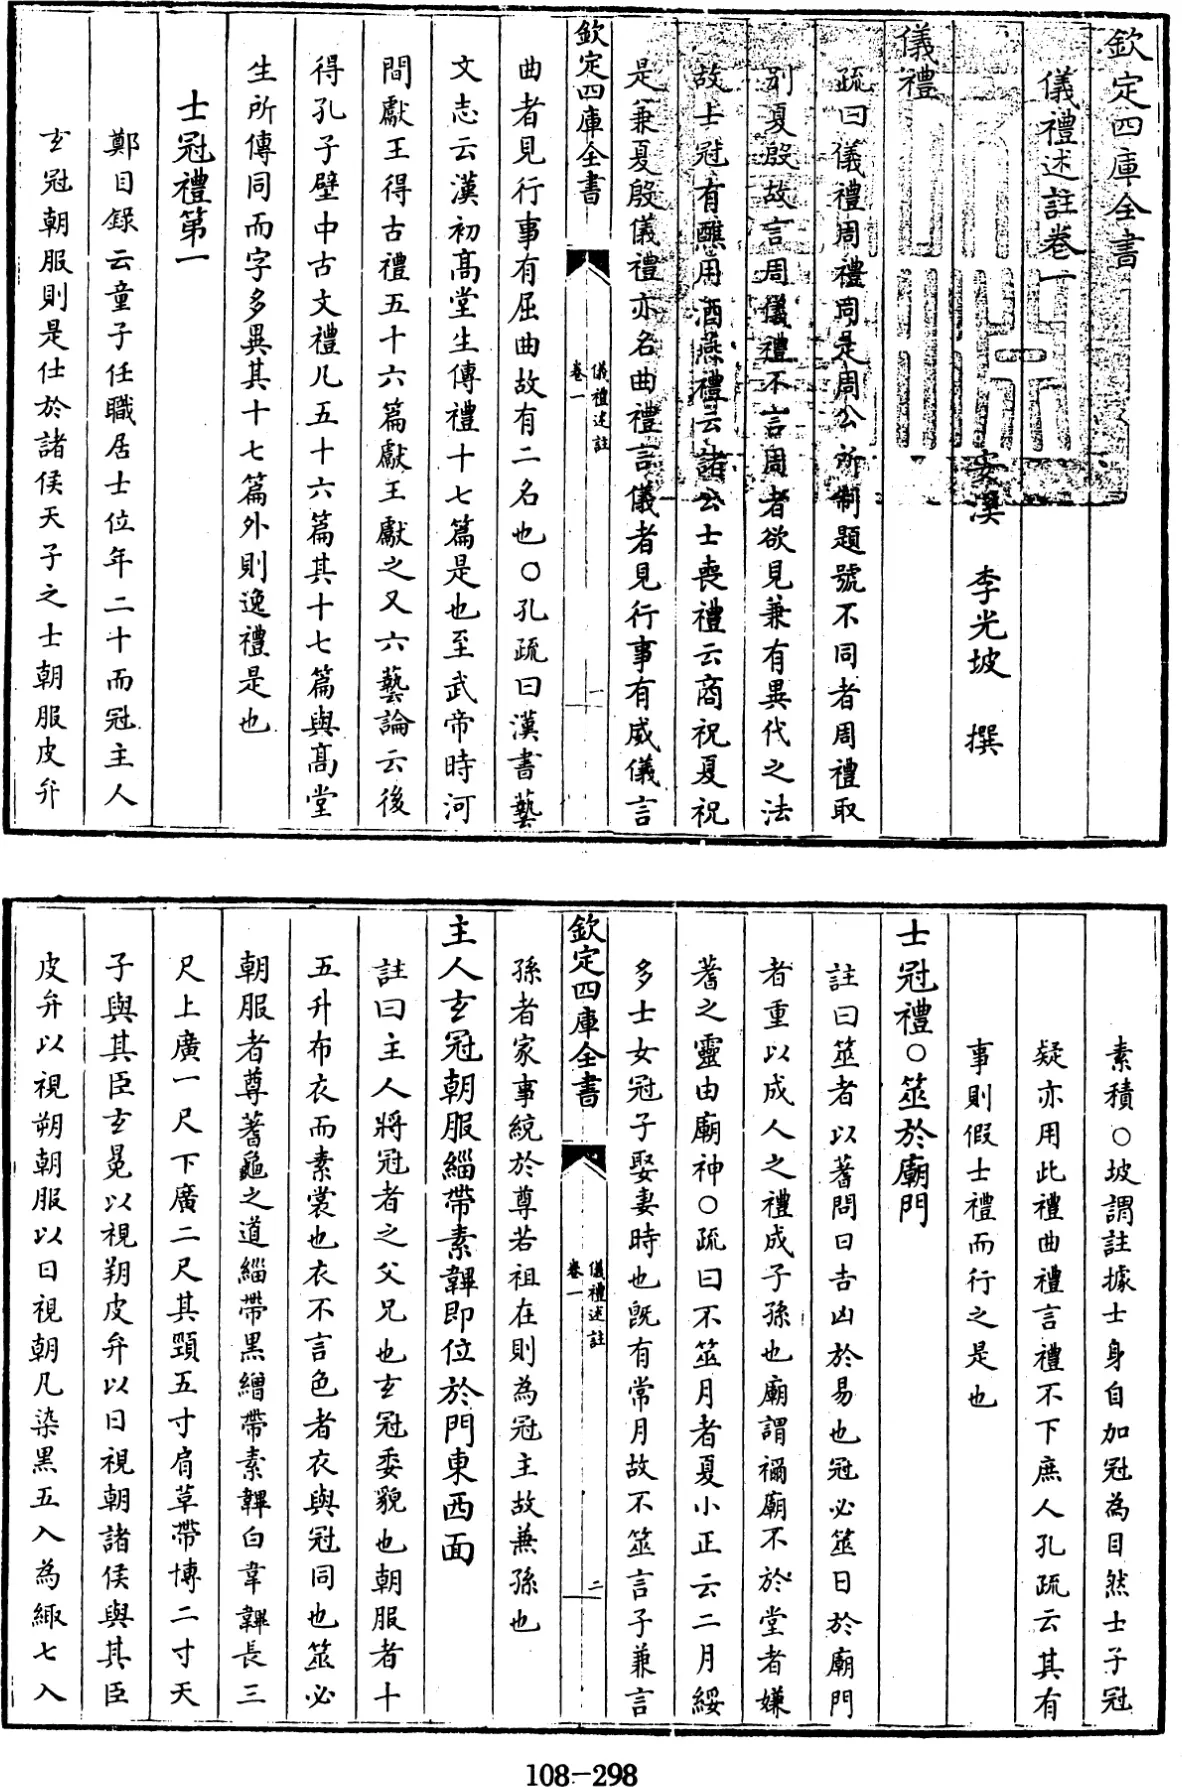 欽定四庫全書
儀禮述註卷一
安溪 李光坡 撰
儀禮
疏曰儀禮周禮同是周公所制題號不同者周禮取
別夏殷故言周儀禮不言周者欲見兼有異代之法
故士冠有醮用酒燕禮云諸公士喪禮云商祝夏祝
是兼夏殷儀禮亦名曲禮言儀者見行事有威儀言
欽定四庫全書
儀禮述註
卷一
一
曲者見行事有屈曲故有二名也○孔疏曰漢書藝
文志云漢初高堂生傳禮十七篇是也至武帝時河
間獻王得古禮五十六篇獻王獻之又六藝論云後
得孔子壁中古文禮凡五十六篇其十七篇與高堂
生所傳同而字多異其十七篇外則逸禮是也
士冠禮第一
鄭目錄云童子任職居士位年二十而冠主人
玄冠朝服則是仕於諸侯天子之士朝服皮弁
素積○坡謂註據士身自加冠為目然士子冠
疑亦用此禮曲禮言禮不下庶人孔疏云其有
事則假士禮而行之是也
士冠禮○筮於廟門
註曰筮者以蓍問日吉凶於易也冠必筮日於廟門
者重以成人之禮成子孫也廟謂禰廟不於堂者嫌
蓍之靈由廟神○疏曰不筮月者夏小正云二月綏
多士女冠子娶妻時也既有常月故不筮言子兼言
欽定四庫全書
儀禮述註
卷一
二
孫者家事統於尊若祖在則為冠主故兼孫也
主人玄冠朝服緇帶素韠即位於門東西面
註曰主人將冠者之父兄也玄冠委貌也朝服者十
五升布衣而素裳也衣不言色者衣與冠同也筮必
朝服者尊蓍龜之道緇帶黑繒帶素韠白韋韠長三
尺上廣一尺下廣二尺其頸五寸肩革帶博二寸天
子與其臣玄冕以視朔皮弁以日視朝諸侯與其臣
皮弁以視朔朝服以日視朝凡染黑五入為緅七入
108-298